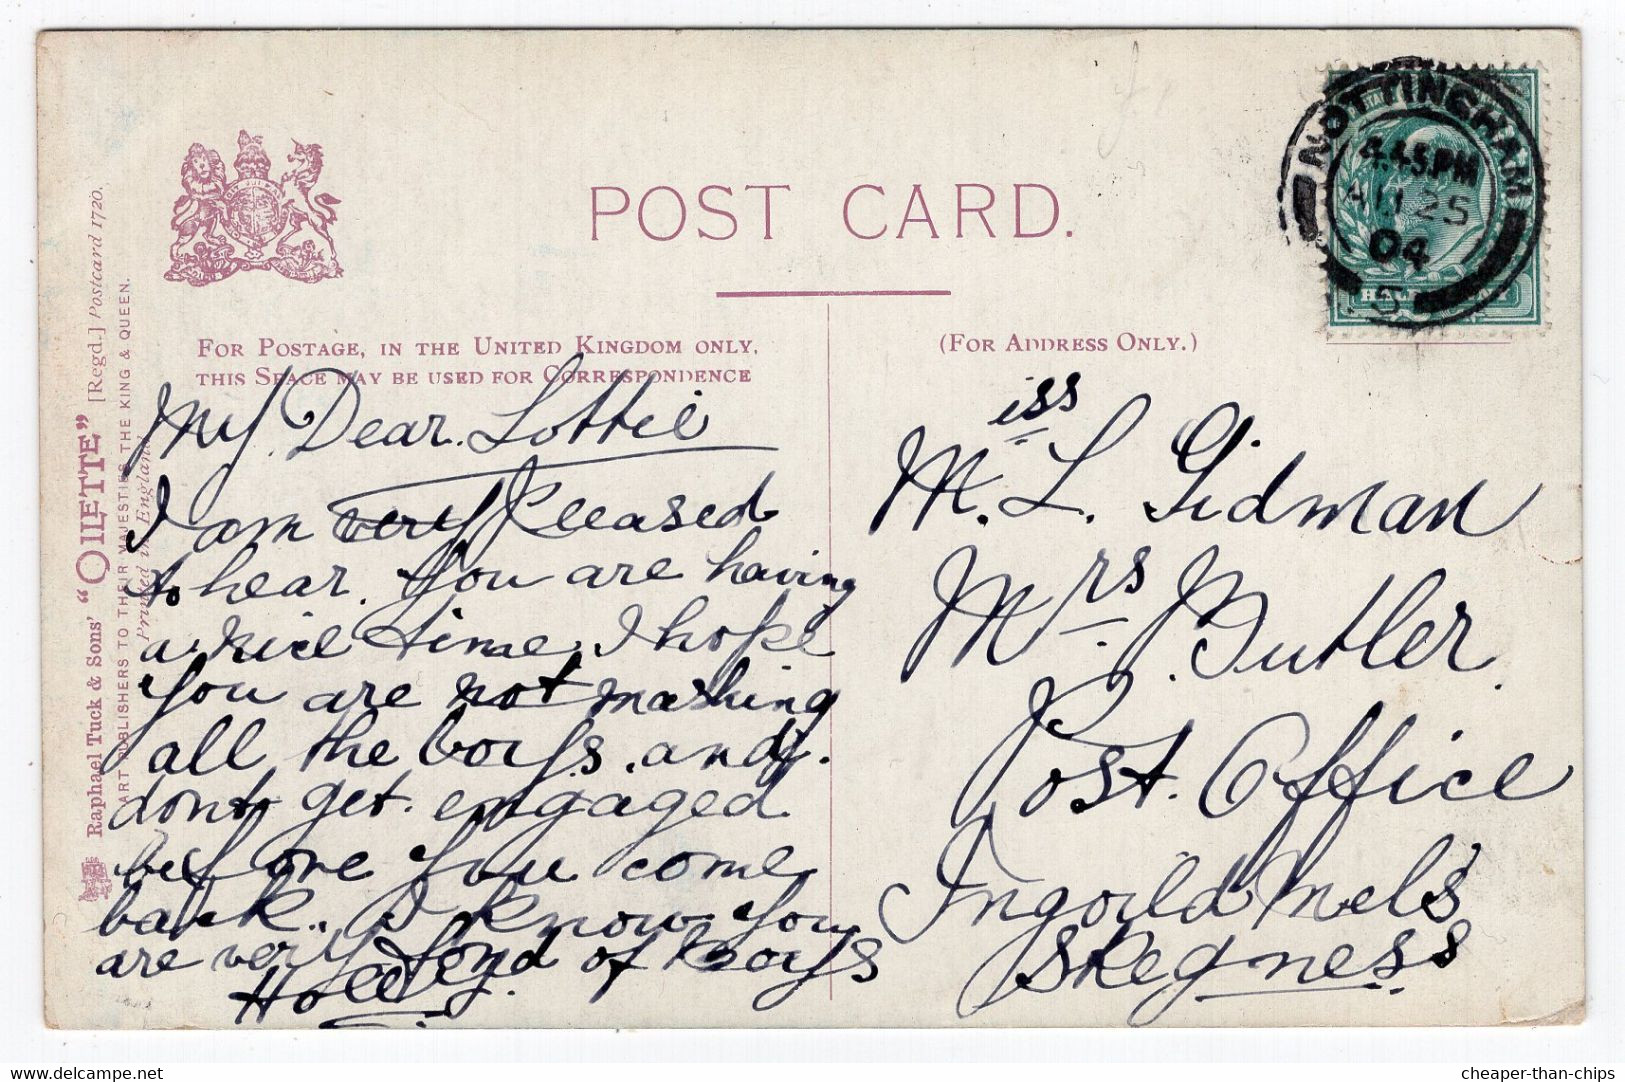 POST CARD.
FOR POSTAGE, IN THE UNITED KINGDOM ONLY,
THIS SPACE MAY BE USED FOR CORRESPONDENCE
(FOR ADDRESS ONLY.)
NOTTINGHAM
4.45.PM
AU 25
04
5
HALFPENNY
Raphael Tuck & Sons' "OILETTE" [Regd.] Postcard 1720.
ART PUBLISHERS TO THEIR MAJESTIES THE KING & QUEEN.
Printed in England
My Dear Lottie
I am very pleased
to hear you are having
a nice time, I hope
you are not mashing
all the boys, and
dont get engaged
before you come
back. I know you
are very fond of boys
Miss L. Gidman
Mrs. Butler.
Post Office
Ingoldmels
Skegness
cheaper-than-chips